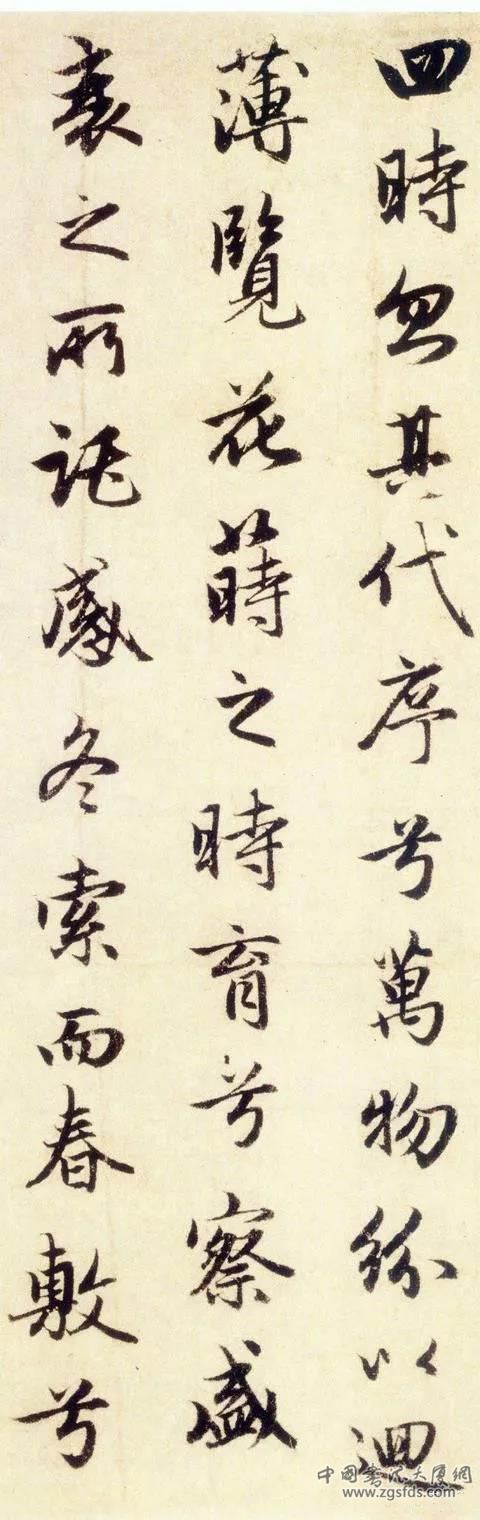 四時忽其代序兮萬物紛以迴
薄覽花蒔之時育兮察盛
衰之所託感冬索而春敷兮
中国书法大厦網
www.zgsfds.com